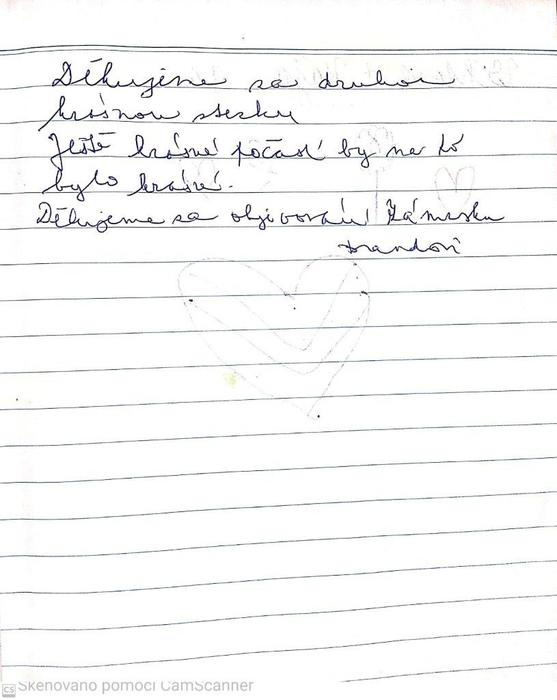 Děkujeme za druhou
krásnou stezku
Ještě krásné počasí by na to
bylo krásné.
Děkujeme za objevování Zámrsku
Skenováno pomocí CamScanner